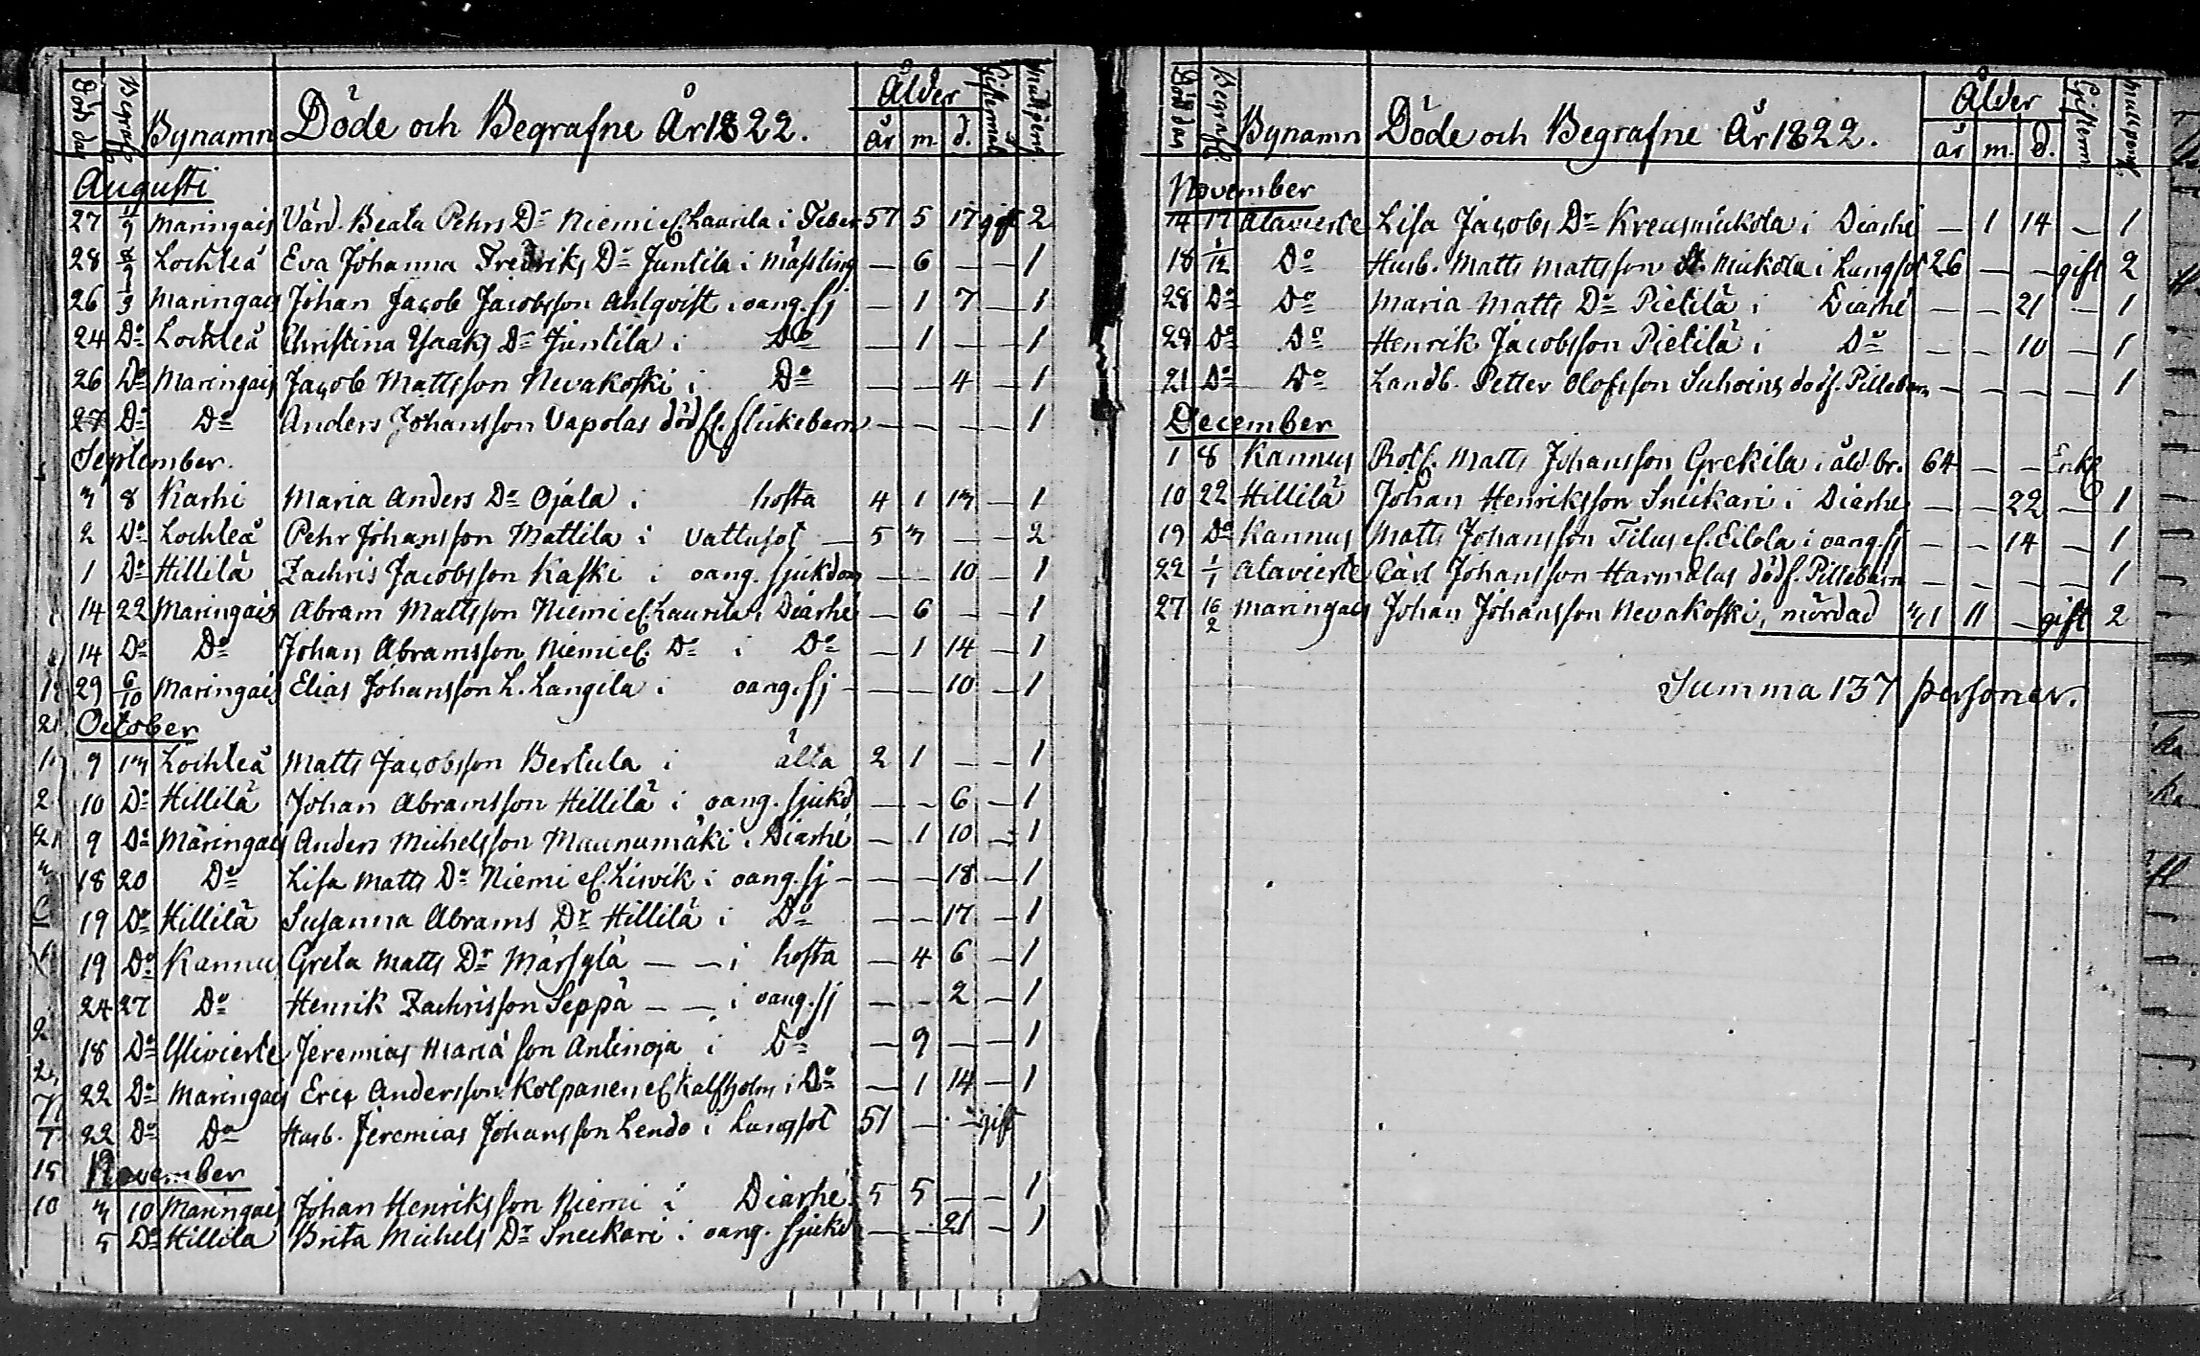 Död dag Begrafn. Bynamn Döde och Begrafne År 1822. Ålder år m d. Giftermål
Augusti
27 11/9 Maringais Värd. Beata Pehrs Dr Niemi el. Laurila i Feber 57 5 17 gift 2
28 8/9 Lochteå Eva Johanna Fredriks Dr Juntila i Mässling — 6 — — 1
26 1/9 Maringais Johan Jacob Jacobsson Ahlqvist i oang. sj — 1 7 — 1
24 Do Lochteå Christina Isaaks Dr Juntila i Do — 1 — — 1
26 Do Maringais Jacob Mattsson Nevakoski i Do — — 4 — 1
27 Do Do Anders Johansson Vapolas dödf. flickebarn — — — — 1
September.
3 8 Karhi Maria Anders Dr Ojala i hosta 4 1 13 — 1
2 Do Lochteå Pehr Johansson Mattila i Vattusot — 5 3 — — 2
1 Do Hillilä Zachris Jacobsson Kaski i oang. sjukdom — — 10 — 1
14 22 Maringais Abram Mattsson Niemi el. Laurila i Diarhé — 6 — — 1
14 Do Do Johan Abramsson Niemi el. Do i Do — 1 14 — 1
29 6/10 Maringais Elias Johansson L. Langila i oang. sj — — — 10 — 1
October
9 13 Lochteå Matts Jacobsson Bertula i älta 2 1 — — 1
10 Do Hillilä Johan Abramsson Hillilä i oang. sjukd — — 6 — 1
9 Do Maringais Anders Michelsson Maunumäki i Diarhé — 1 10 — 1
18 20 Do Lisa Matts Dr Niemi el. Liswik i oang. sj — — — 18 — 1
19 Do Hillilä Susanna Abrams Dr Hillilä i Do — — 17 — 1
19 Do Kannus Greta Matts Dr Märsylä — — i hosta — 4 6 — 1
24 27 Do Henrik Zachrisson Seppä — — i oang. sj — — 2 — 1
18 Do Ylivierte Jeremias Maria son Antinoja i Do — 9 — — 1
22 Do Maringais Eric Andersson Kolpanen el. Kalfholm i Do — 1 14 — 1
22 Do Do Husb. Jeremias Johansson Lendo i Lungsot 51 — — gift
November
3 10 Maringais Johan Henriksson Niemi i Diarhé 5 5 — — 1
5 Do Hillila Brita Michels Dr Sneckari i oang. sjukd — — 21 — 1
Död dag Begrafn. Bynamn Döde och Begrafne År 1822. Ålder år m. d. Gifterm.
November
14 17 Alavierte Lisa Jacobs Dr Kreusmickola i Diarhé — 1 14 — 1
18 1/12 Do Husb. Matts Mattsson Mickola i Lungsot 26 — — gift 2
28 Do Do Maria Matts Dr Pietilä i Diarhé — — 21 — 1
29 Do Do Henrik Jacobsson Pietilä i Do — — 10 — 1
21 Do Do Landb. Petter Olofsson Suhoins dödf. Pillebarn — — — — 1
December
1 8 Kannus Rotf. Matts Johansson Grekila i åld. br. 64 — — Enkl
10 22 Hillilä Johan Henriksson Sneckari i Diarhe — — 22 — 1
19 Do Kannus Matts Johansson Tilus el. Eilola i oang. sj — — 14 — 1
22 1/1 Alavierte Carl Johansson Harmalas dödf. Pillebarn — — — — 1
27 16/2 Maringais Johan Johansson Nevakoski, mördad 31 11 — gift 2
Summa 137 personer.